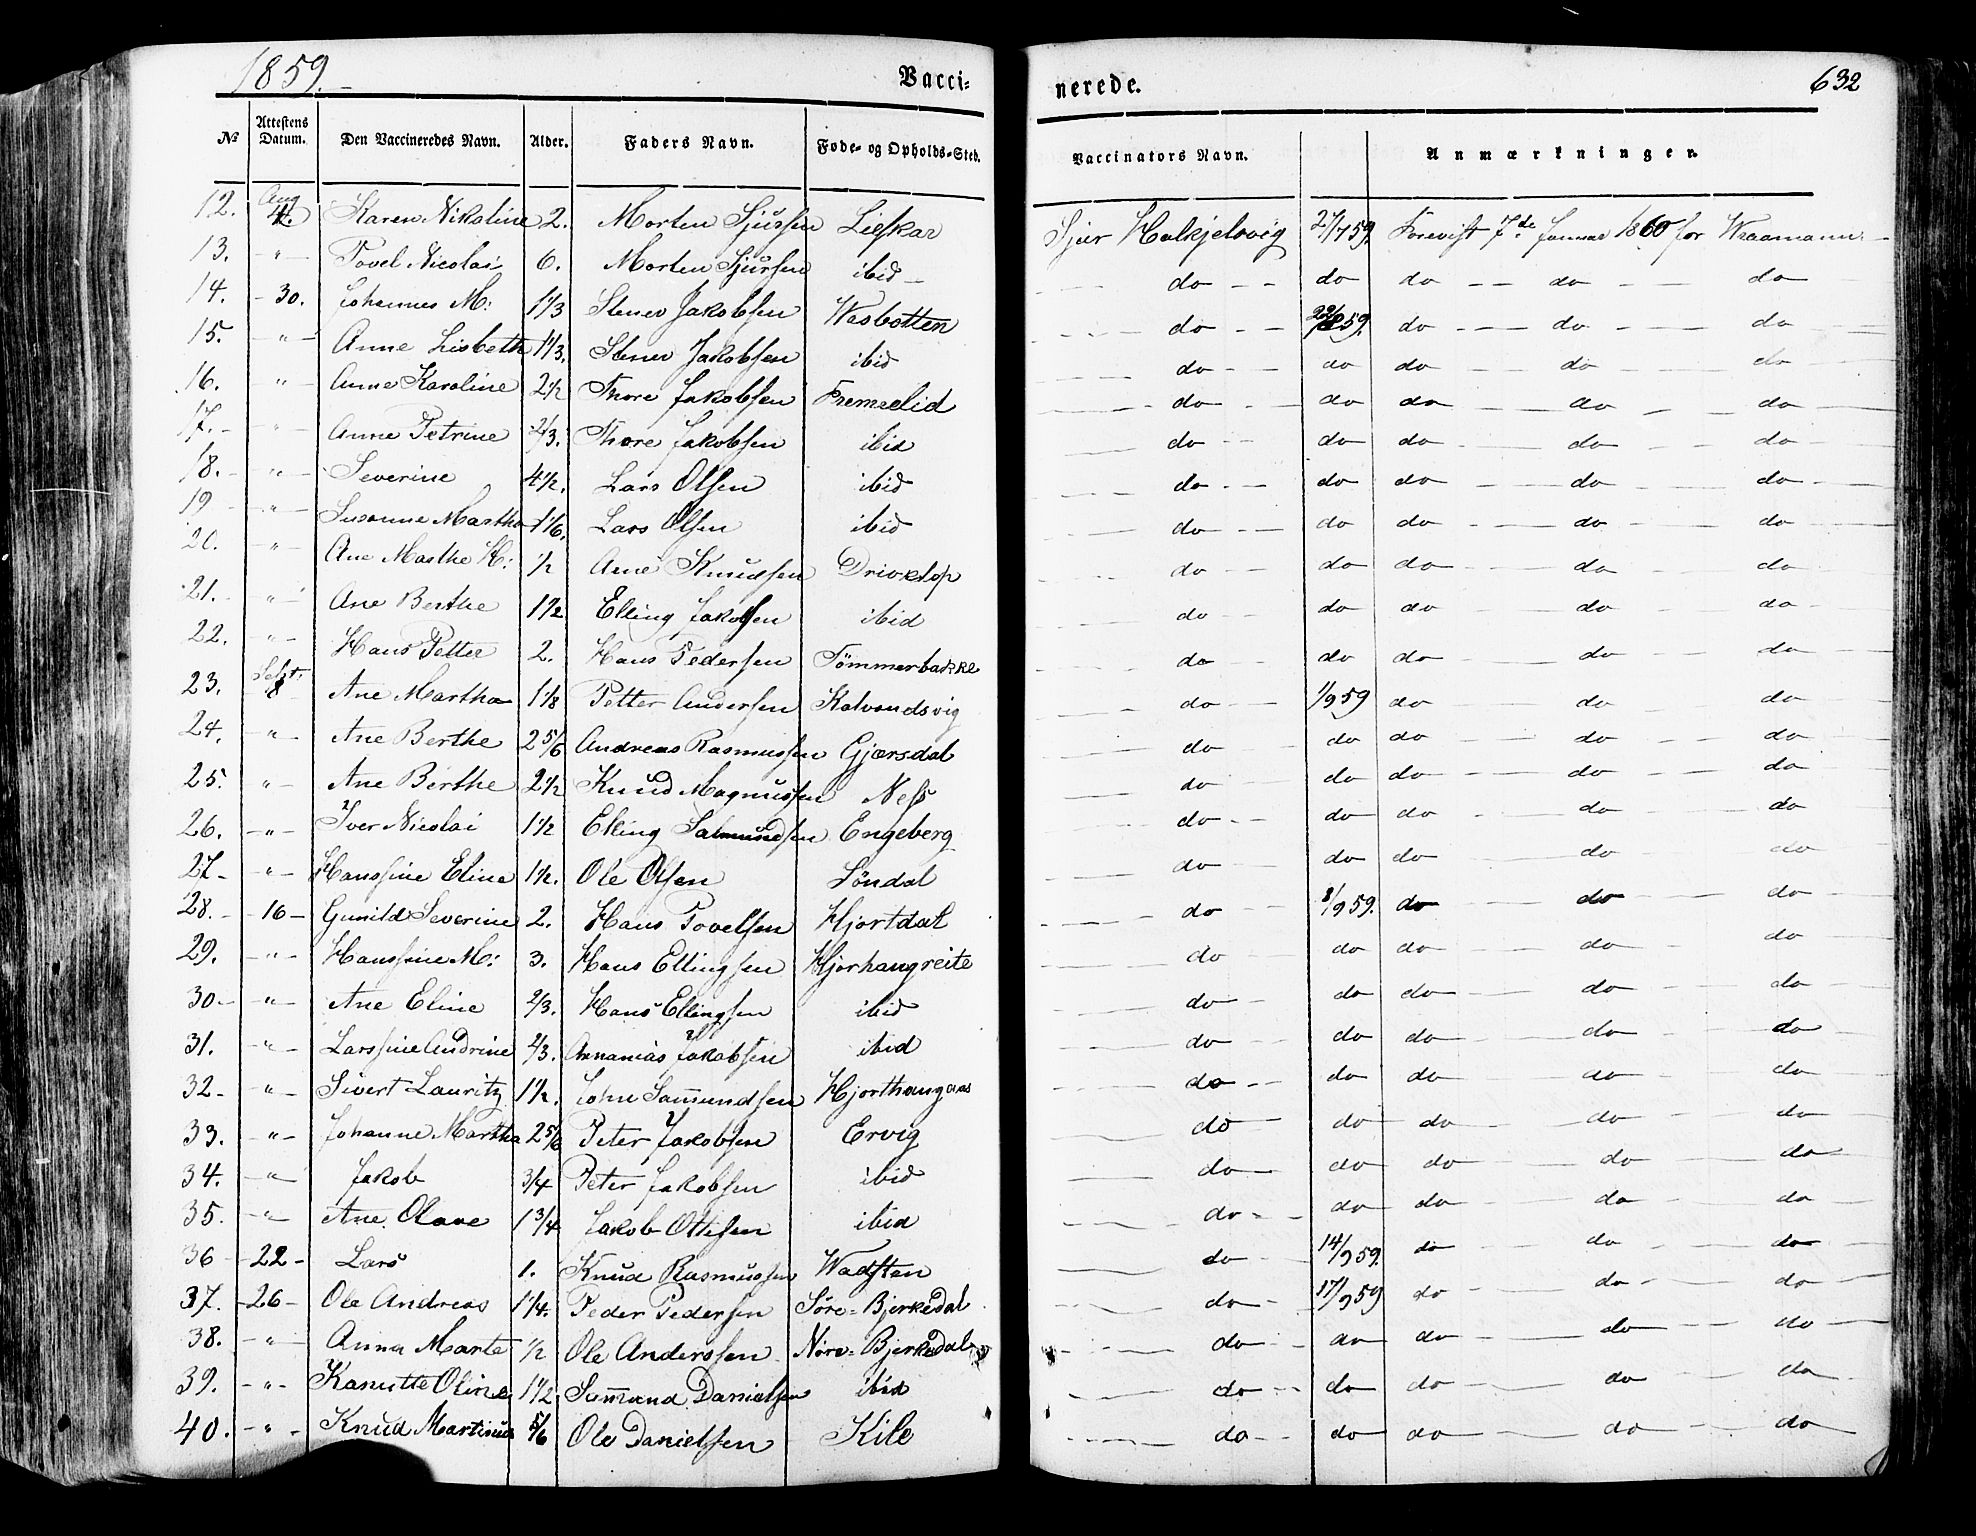 1859.
Vacci=
nerede.
632
No Attestens Datum. Den Vaccineredes Navn. Alder. Faders Navn. Føde- og Opholds-Sted. Vaccinators Navn. Anmærkninger.
12. Aug 4. Karen Nikoline 2. Morten Sjursen Lieskar Sjur Halkjelsvig 27/7 59. Forevist 7de Januar 1860 for
13. " Povel Nicolai 6. Morten Sjursen ibid do do do do do
14. 30. Johannes M: 1 1/3 Stener Jakobsen Wasbotten do 59. do do do
15. " Anne Lisbeth 1 1/3. Stener Jakobsen ibid do do do do do
16. " Anne Karoline 2 1/2 Thore Jakobsen Fremselid do do do do do
17. " Anne Petrine 2/3. Thore Jakobsen ibid do do do do do
18. " Severine 4 1/2. Lars Olsen ibid do do do do do
19 " Susanne Martha 1 1/6. Lars Olsen ibid do do do do do
20. " Ane Marthe H: 1/2 Arne Knudsen Drivklop do do do do do
21. " Ane Berthe 1 1/2 Elling Jakobsen ibid do do do do do
22. " Hans Petter 2. Hans Pedersen Tömmerbakke do do do do do
23. Sept. 8 Ane Martha 1 1/8 Petter Andersen Kalvandsvig do 1/9 59 do do do
24. " Ane Berthe 2 5/6 Andreas Rasmussen Gjærsdal do do do do do
25. " Ane Birthe 2 1/2 Knud Magnussen Ness do do do do do
26. " Iver Nicolai 1 1/2 Elling Salmundsen Engeberg do do do do do
27 " Hanssine Eline 1 1/2. Ole Olsen Söndal do do do do do
28. 16 Gunild Severine 2. Hans Povelsen Hjortdal do 8/9 59. do do do
29. " Hanssine M: 3. Hans Ellingsen Hjorhangreite do do do do do
30 " Ane Eline 2/3. Hans Ellingsen ibid do do do do do
31. " Larssine Andrine 2/3. Annanias Jakobsen ibid do do do do do
32 " Sivert Lauritz 1 1/2. John Samundsen Hjorthangaas do do do do do
33. " Johanne Martha 2 5/6 Peter Jakobsen Ervig do do do do do
34. " Jakob 3/4 Peter Jakobsen ibid do do do do do
35. " Ane Olave 1 3/4 Jakob Ottesen ibid do do do do do
36 22 Lars 1. Knud Rasmussen Wadsten do 14/9 59. do do do
37. 26 Ole Andreas 1 1/4. Peder Pedersen Söre=Bjerkedal do 17/9 59 do do do
38. " Anna Marte 1/2 Ole Anderssen Nöre=Bjerkedal do do do do do
39. " Kanutte Oline 1 1/2 Samund Danielsen ibid do do do do do
40. " Knud Martinus 5/6 Ole Danielsen Kile do do do do do